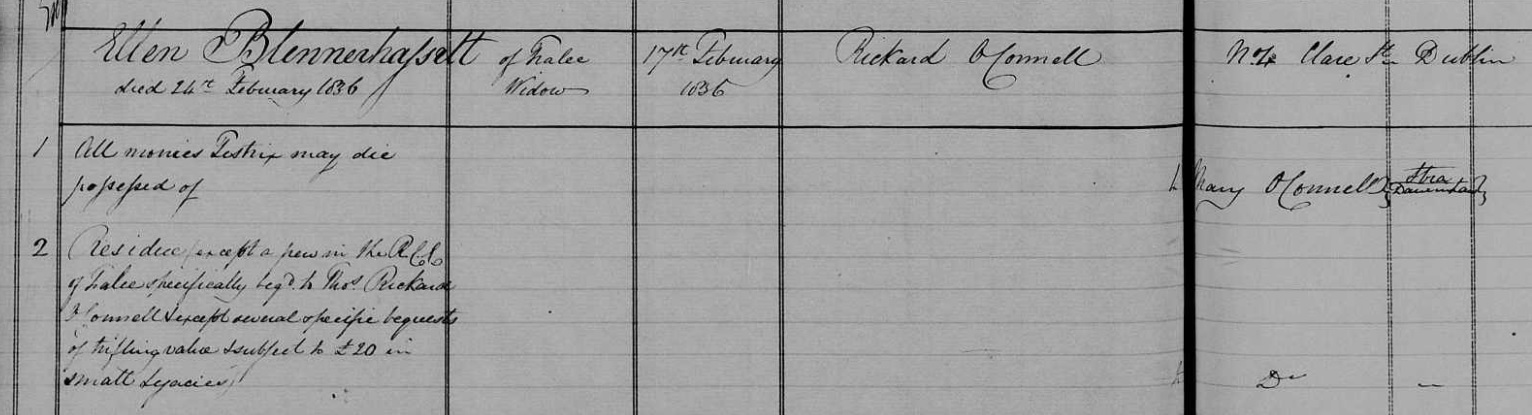 Ellen Blennerhassett of Tralee 17th February Rickard O'Connell No 4 Clare St Dublin
died 24th February 1836 Widow 1836
1 All monies Testrix may die
possessed of
Mary O'Connell Stra
2 Residue (except a pew in the R C C
of Tralee specifically beqd to Thos Rickard
O'Connell & except several specific bequests
of trifling value & subject to £20 in
small Legacies)
Do "